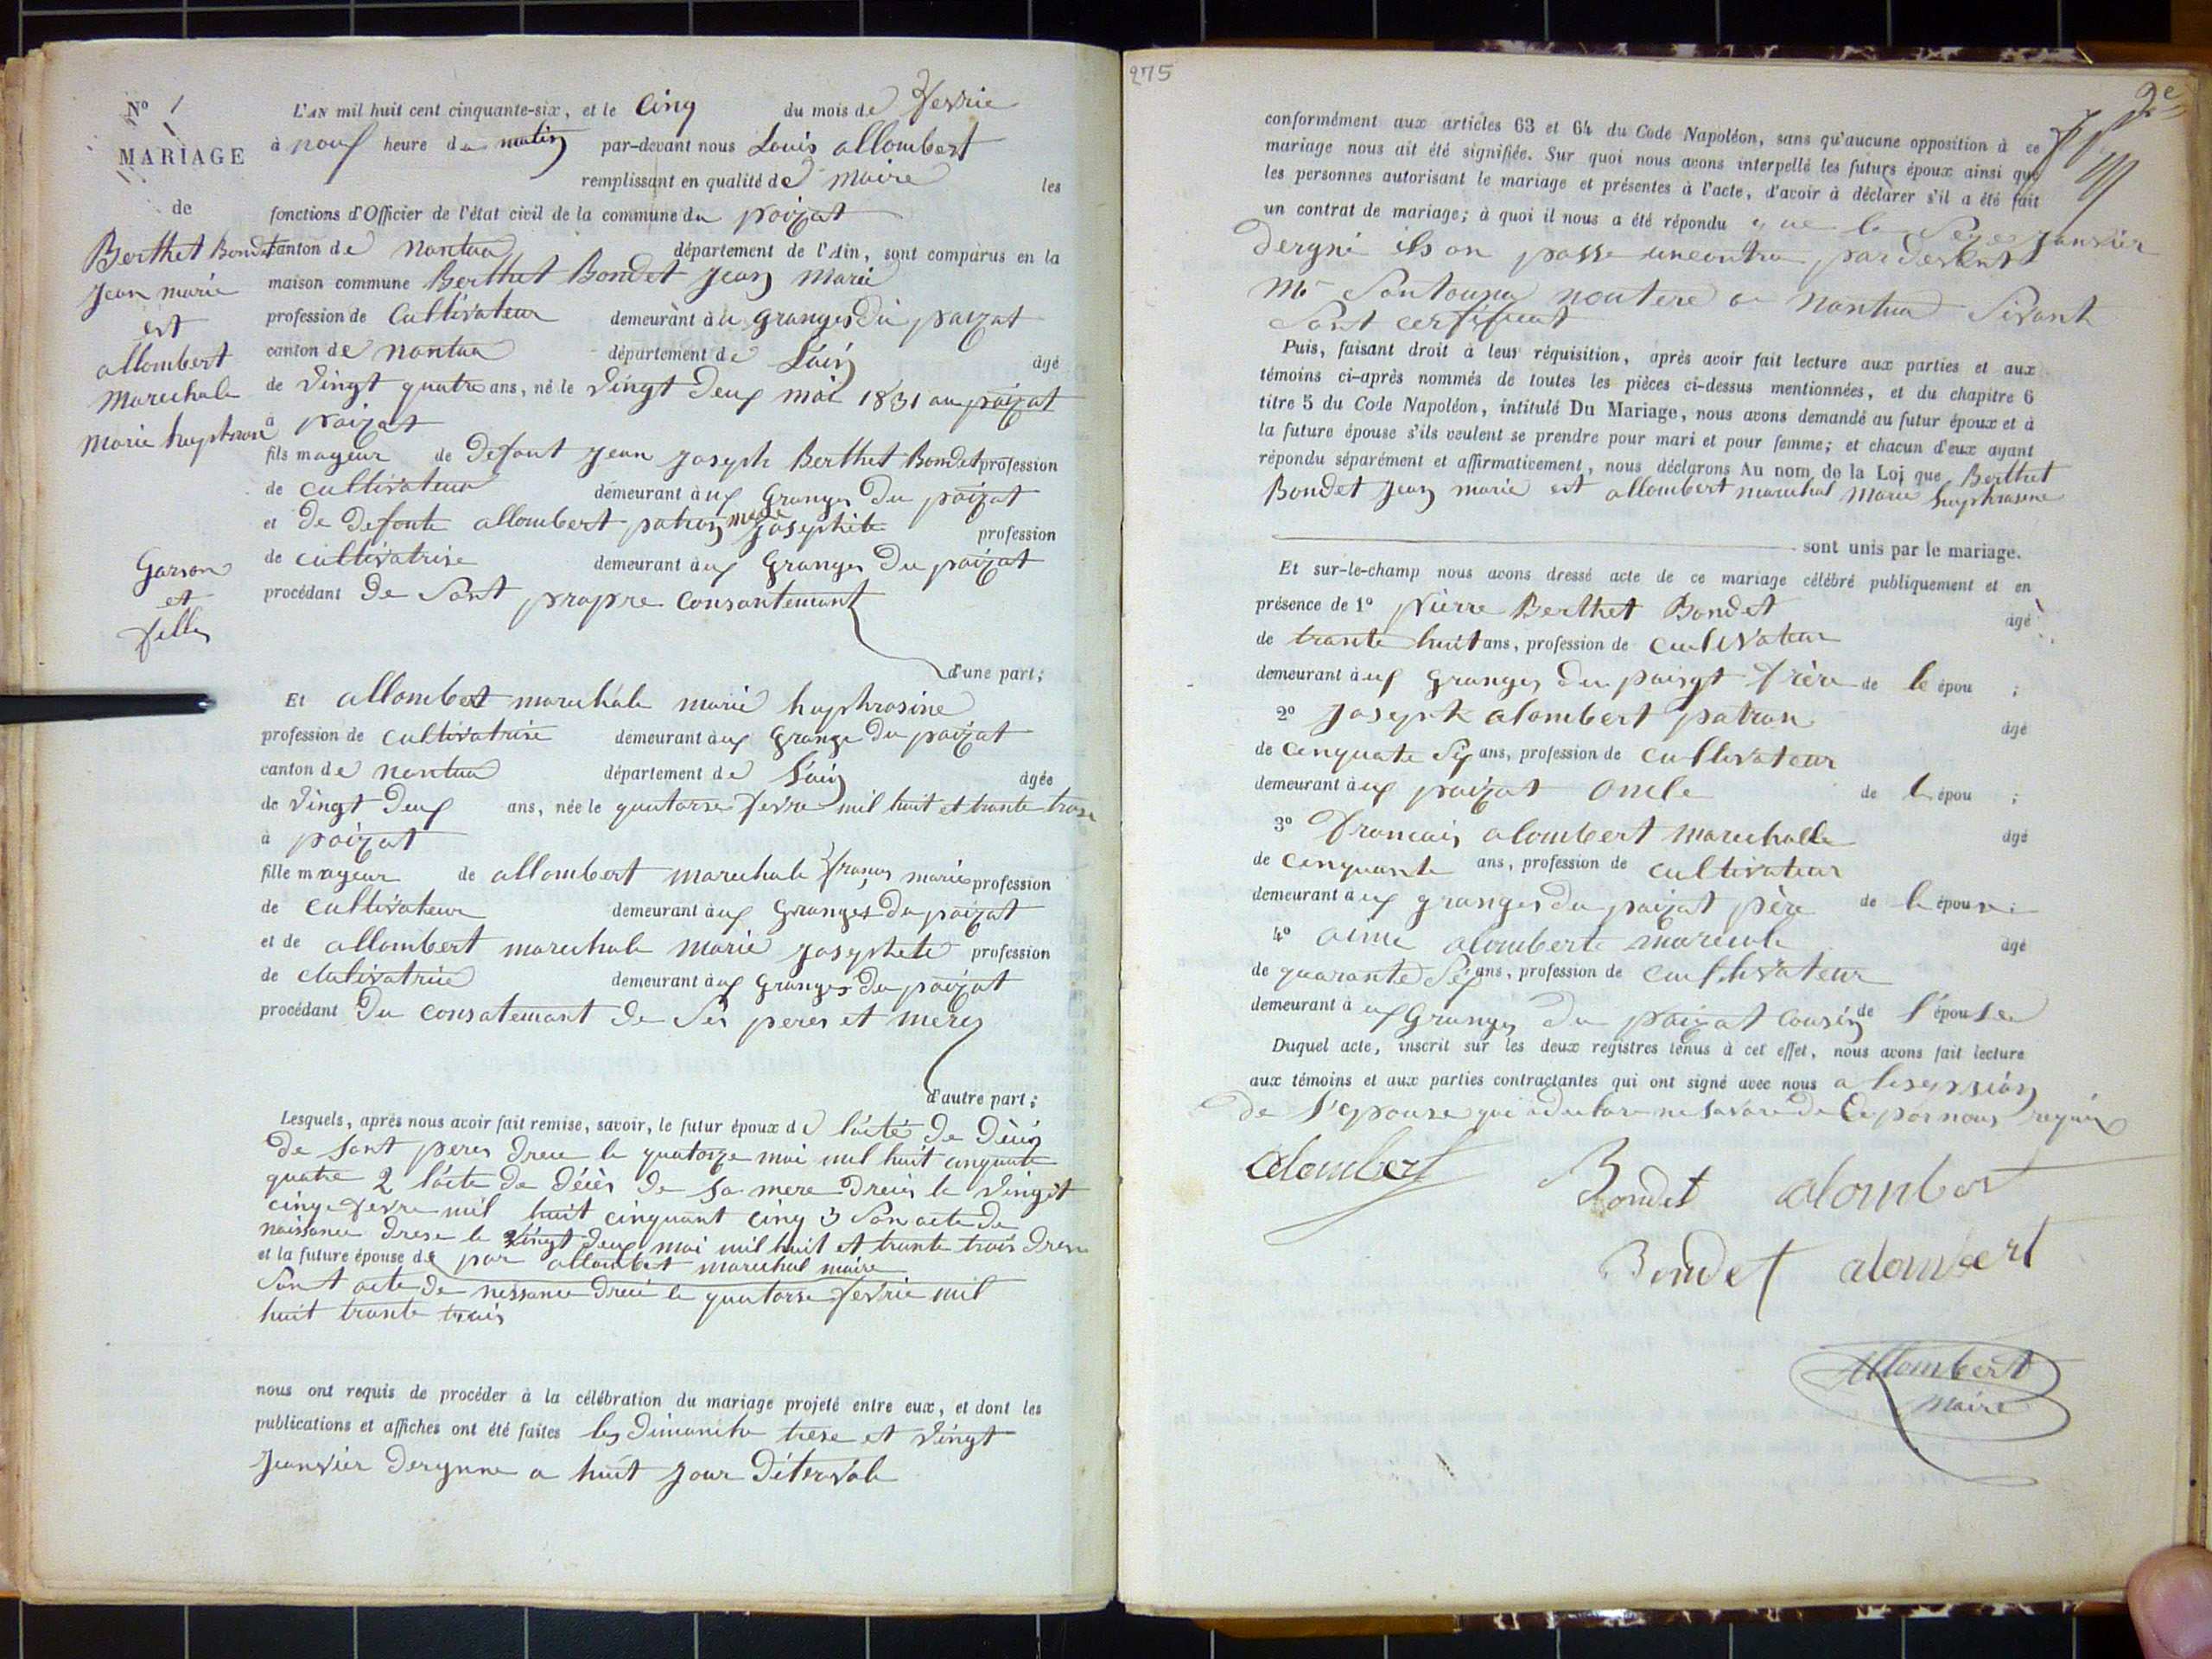 N° 1
MARIAGE
de
Berthet Bondet
Jean marie
est
allombert
Marechale
Marie huphrosine
Garson
et
fille
L'AN mil huit cent cinquante-six, et le Cinq du mois de fevrie
à nouf heure du matin par-devant nous Louis allombert
remplissant en qualité de Maire les
fonctions d'Officier de l'état civil de la commune du poizat
canton de nantua département de l'Ain, sont comparus en la
maison commune Berthet Bondet Jean Marie
profession de Cultivateur demeurant à u granges du poizat
canton de nantua département de L'ain âgé
de vingt quatre ans, né le vingt deux mai 1831 au poizat
à poizat
fils mageur de defout Jean Joseph Berthet Bondet profession
de cultivateur demeurant à ux Granges Du poizat
et de defonte allombert patron marie Josephete profession
de cultivatrise demeurant à ux Granges Du poizat
procédant De Sont propre consantemant
d'une part;
Et allombert marechale marie huphrosine
profession de cultivatrise demeurant à ux Grange du poizat
canton de nantua département de L'ain âgée
de vingt Deux ans, née le quatorse fevrie mil huit et trante trois
à poizat
fille mageur de allombert marechale françois marie profession
de cultivateur demeurant à ux Granges Du poizat
et de allombert marechale Marie Josephete profession
de clutivatrice demeurant à ux Granges Du poizat
procédant Du consatemant De Ses peres et meres
d'autre part;
Lesquels, après nous avoir fait remise, savoir, le futur époux de l'acte De Décès
De sont peres Drecé le quatorze mai mil huit cinquante
quatre 2 l'acte De décès De Sa mere Drecé le vingt
cinqe fevrie mil huit cinquant cinq 3 Son acte de
naissance Drese le vingt Deux mai mil huit et trante trois Drese
et la future épouse de par allombert marechal maire
Sont acte De nessance Drecé le quatorse fevrie mil
huit trante trois
nous ont requis de procéder à la célébration du mariage projeté entre eux, et dont les
publications et affiches ont été faites les Dimanche trese et vingt
Jeanvier Dergnne a huit Jour Déterval
275
2e
conformément aux articles 63 et 64 du Code Napoléon, sans qu'aucune opposition à ce
mariage nous ait été signifiée. Sur quoi nous avons interpellé les futurs époux ainsi que
les personnes autorisant le mariage et présentes à l'acte, d'avoir à déclarer s'il a été fait
un contrat de mariage; à quoi il nous a été répondu que le Seze Janvier
Dergné ils on passe un contra par Devent
Me noutere a Nantua Sivant
Sont certificat
Puis, faisant droit à leur réquisition, après avoir fait lecture aux parties et aux
témoins ci-après nommés de toutes les pièces ci-dessus mentionnées, et du chapitre 6
titre 5 du Code Napoléon, intitulé Du Mariage, nous avons demandé au futur époux et à
la future épouse s'ils veulent se prendre pour mari et pour femme; et chacun d'eux ayant
répondu séparément et affirmativement, nous déclarons Au nom de la Loi que Berthet
Bondet Jean marie est allombert marechal Marie huphrasine
sont unis par le mariage.
Et sur-le-champ nous avons dressé acte de ce mariage célébré publiquement et en
présence de 1° Pierre Berthet Bondet âgé
de trante huit ans, profession de cultivateur
demeurant à ux Granges du poizat frère de le épou ;
2° Joseph alombert patron âgé
de cinquate Six ans, profession de cultivateur
demeurant à ux poizat oncle de l épou ;
3° francais alombert marechalle âgé
de cinquante ans, profession de cultivateur
demeurant à ux granges du poizat père de le épouse
4° aime alomberte marechale âgé
de quarante Six ans, profession de cultivateur
demeurant à ux Granges Du poizat Cousin de l'épouse
Duquel acte, inscrit sur les deux registres tenus à cet effet, nous avons fait lecture
aux témoins et aux parties contractantes qui ont signé avec nous a lesepsion
De l'epouse qui a declare ne savoir de par nous requis
alombert Bondet alombert
Bondet alombert
Allombert
Maire